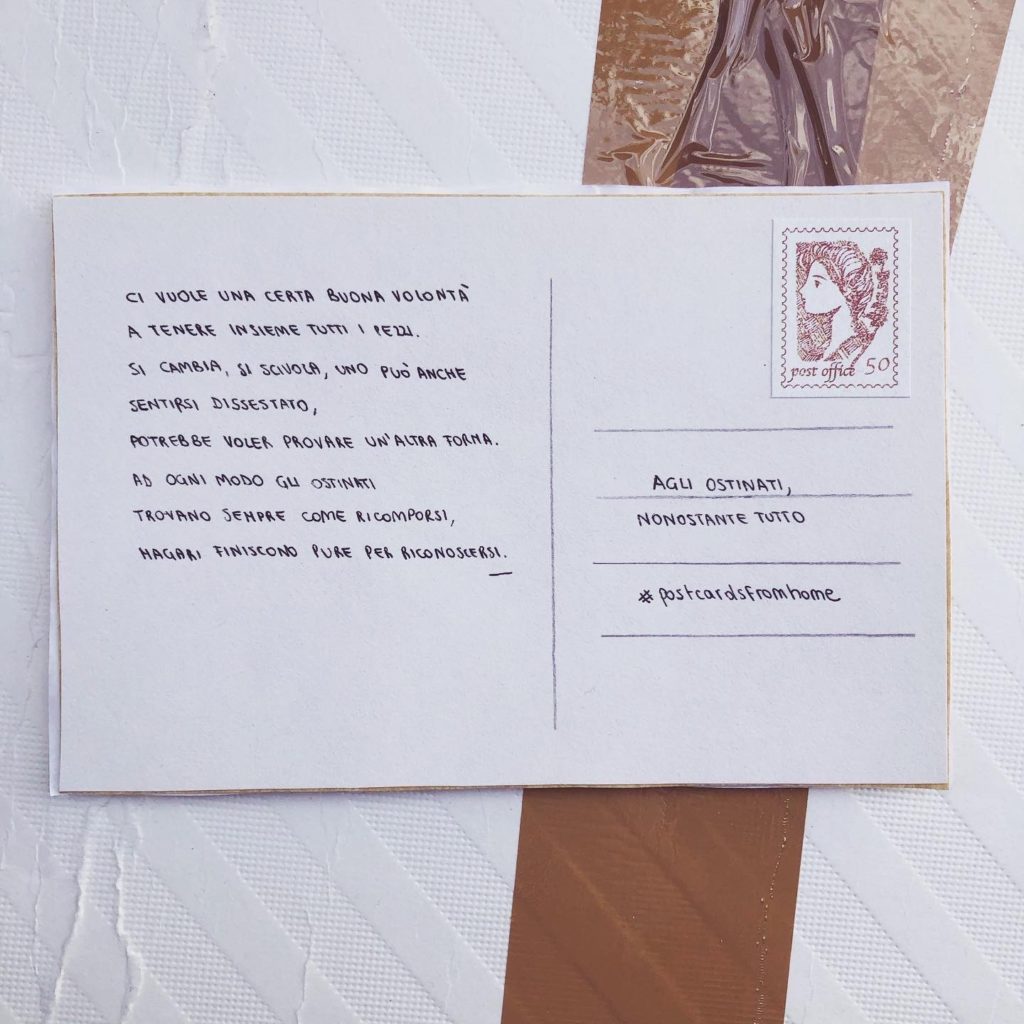 CI VUOLE UNA CERTA BUONA VOLONTÀ
A TENERE INSIEME TUTTI I PEZZI.
SI CAMBIA, SI SCIVOLA, UNO PUÒ ANCHE
SENTIRSI DISSESTATO,
POTREBBE VOLER PROVARE UN'ALTRA FORMA.
AD OGNI MODO GLI OSTINATI
TROVANO SEMPRE COME RICOMPORSI,
MAGARI FINISCONO PURE PER RICONOSCERSI.
post office 50
AGLI OSTINATI,
NONOSTANTE TUTTO
#postcardsfromhome